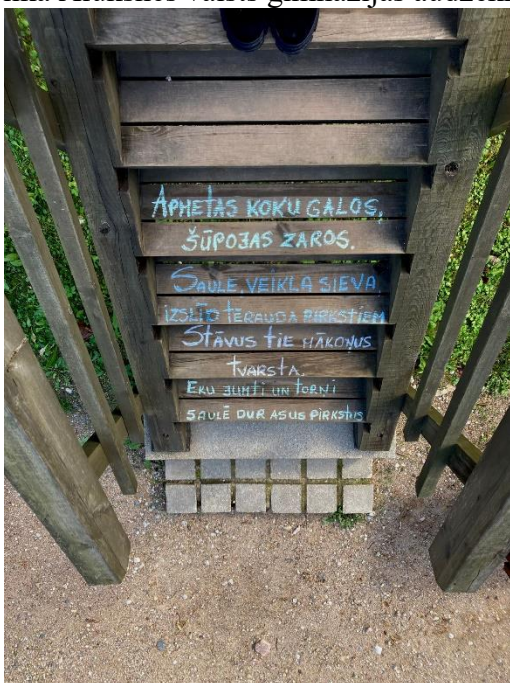 APMETAS KOKU GALOS,
ŠŪPOJAS ZAROS.
SAULE, VEIKLA SIEVA
IZSLĪD TĒRAUDA PIRKSTIEM
STĀVUS TIE MĀKOŅUS
TVARSTA.
ĒKU JUMTI UN TORŅI
SAULĒ DUR ASUS PIRKSTUS